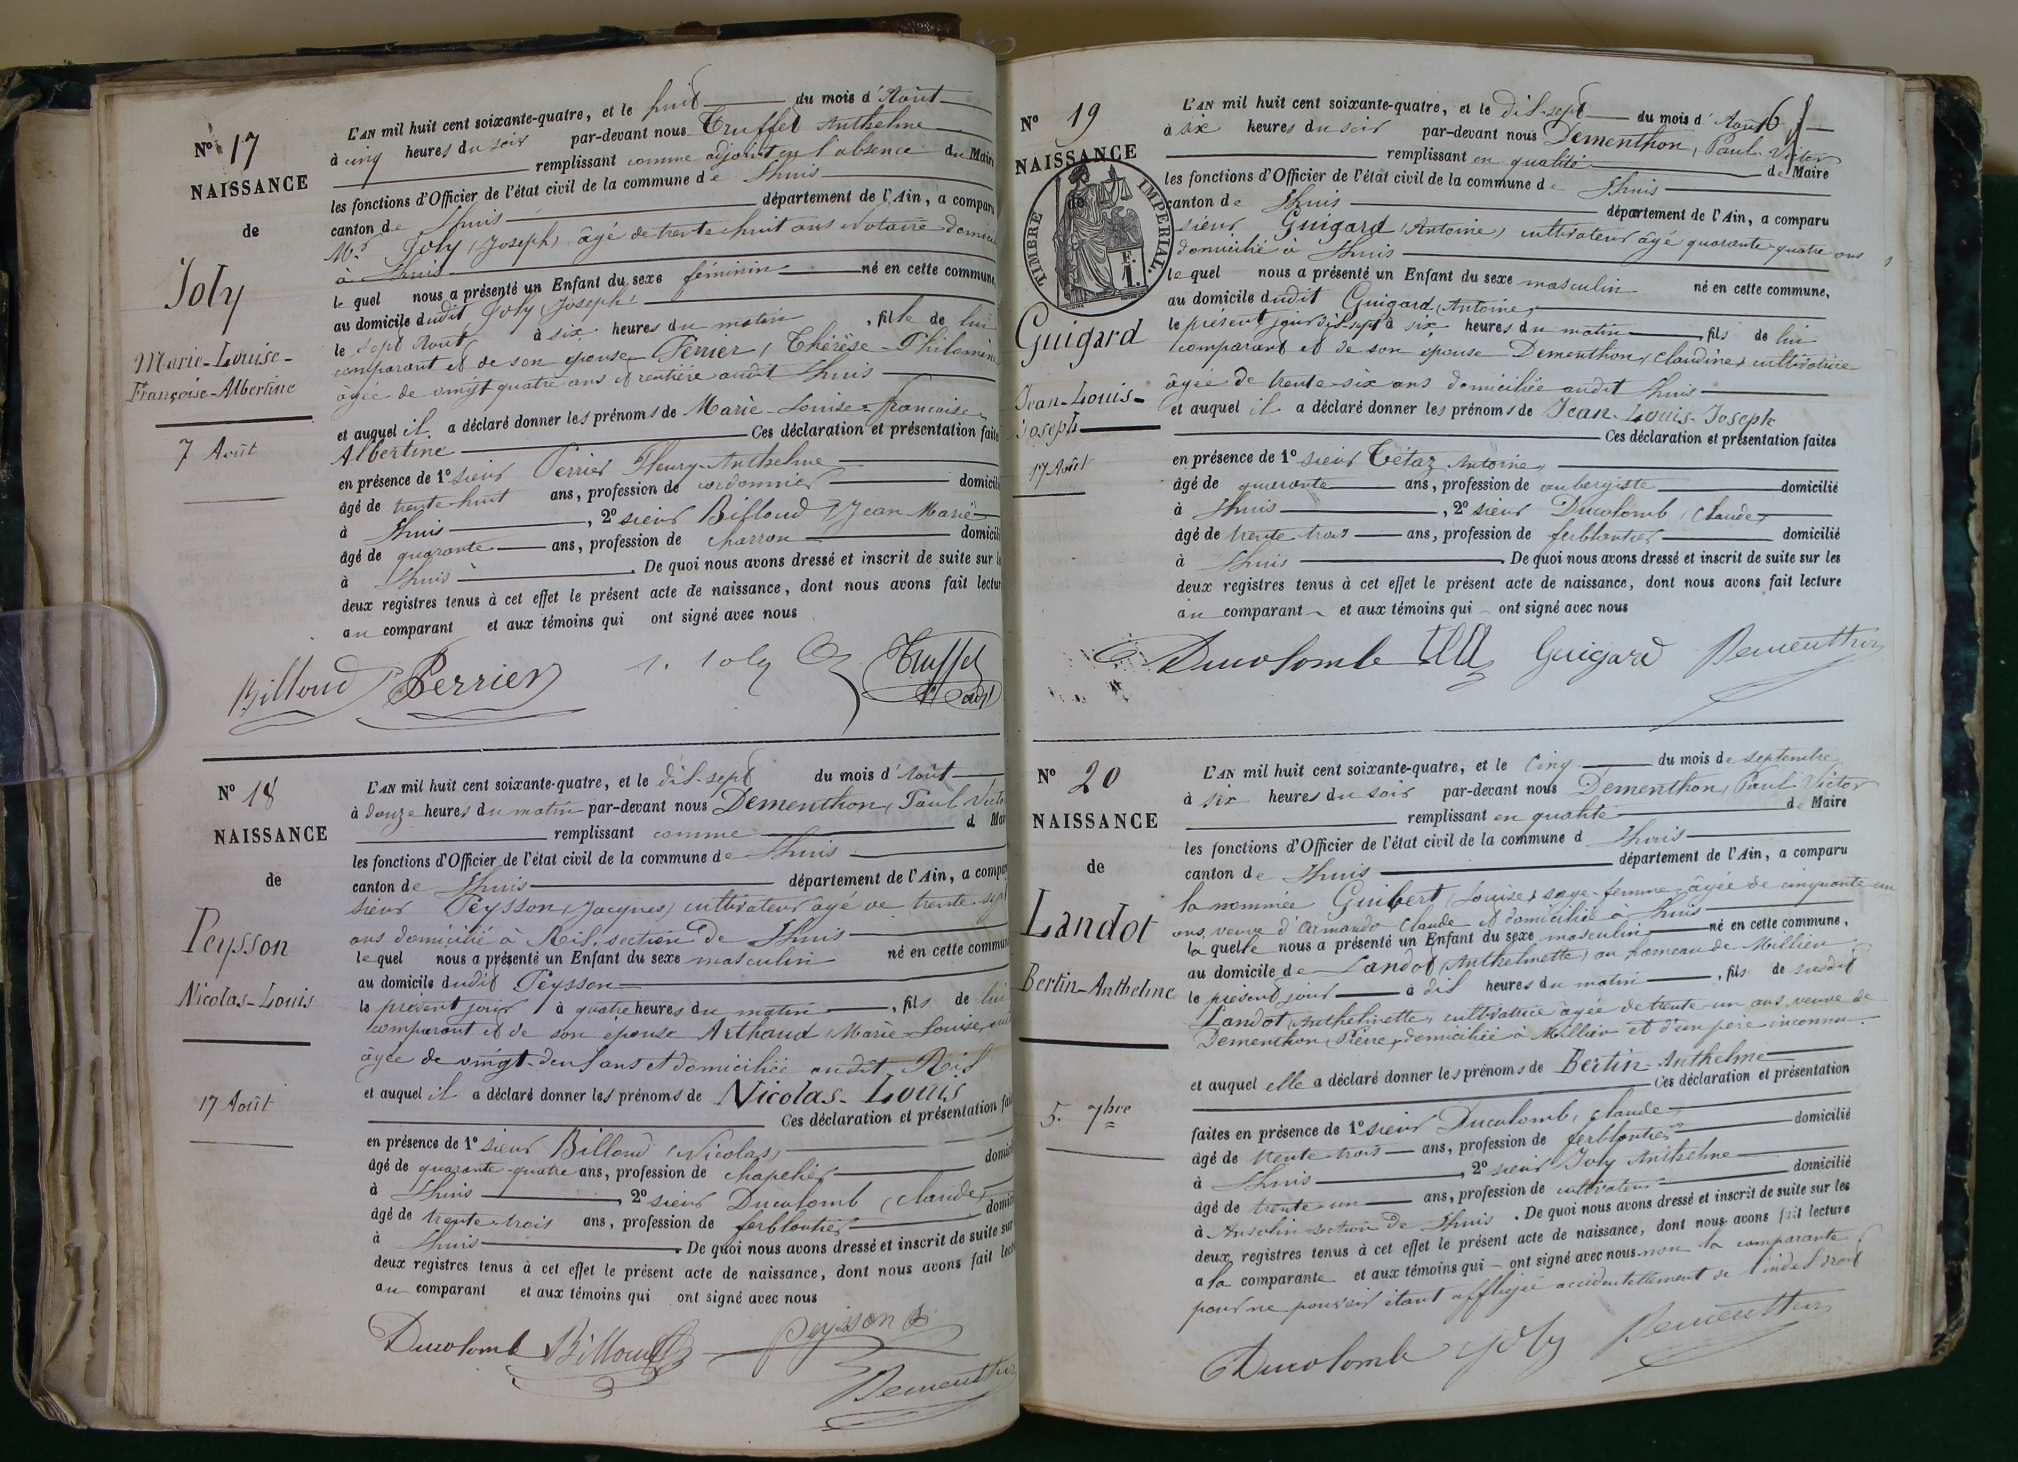 N° 17
NAISSANCE
de
Joly
Marie-Louise-
Françoise-Albertine
7 Août
L'AN mil huit cent soixante-quatre, et le huit du mois d'Août
à cinq heures du soir par-devant nous Truffet Anthelme
remplissant comme adjoint en l'absence du Maire
les fonctions d'Officier de l'état civil de la commune de Lhuis
canton de Lhuis département de l'Ain, a comparu
Mr. Joly (Joseph) âgé de trente huit ans Notaire domicilié
à Lhuis
le quel nous a présenté un Enfant du sexe féminin né en cette commune,
au domicile dudit Joly (Joseph)
le sept Août à six heures du matin, fille de lui
comparant et de son épouse Perrier, Thérèse-Philomène
âgée de vingt quatre ans et rentière audit Lhuis
et auquel il a déclaré donner les prénoms de Marie-Louise-françoise-
Albertine Ces déclaration et présentation faites
en présence de 1° sieur Perrier Fleury-Anthelme
âgé de trente huit ans, profession de cordonnier domicilié
à Lhuis, 2° sieur Billoud, Jean Marie
âgé de quarante ans, profession de charron domicilié
à Lhuis. De quoi nous avons dressé et inscrit de suite sur les
deux registres tenus à cet effet le présent acte de naissance, dont nous avons fait lecture
au comparant et aux témoins qui ont signé avec nous
Billoud Perrier J. Joly Truffet
adj
N° 18
NAISSANCE
de
Peysson
Nicolas-Louis
17 Août
L'AN mil huit cent soixante-quatre, et le dix-sept du mois d'Août
à douze heures du matin par-devant nous Dementhon, Paul Victor
remplissant comme d Maire
les fonctions d'Officier de l'état civil de la commune de Lhuis
canton de Lhuis département de l'Ain, a comparu
sieur Peysson, (Jacques) cultivateur âgé de trente-sept
ans domicilié à Rix, section de Lhuis
le quel nous a présenté un Enfant du sexe masculin né en cette commune
au domicile dudit Peysson
le présent jour à quatre heures du matin, fils de lui
comparant et de son épouse Arthaud (Marie-Louise)
âgée de vingt-deux ans et domiciliée audit Rix
et auquel il a déclaré donner les prénoms de Nicolas-Louis
Ces déclaration et présentation faites
en présence de 1° sieur Billoud (Nicolas)
âgé de quarante-quatre ans, profession de chapelier domicilié
à Lhuis, 2° sieur Ducolomb (claude)
âgé de trente-trois ans, profession de ferblantier domicilié
à Lhuis. De quoi nous avons dressé et inscrit de suite sur
deux registres tenus à cet effet le présent acte de naissance, dont nous avons fait lecture
au comparant et aux témoins qui ont signé avec nous
Ducolomb Billoud peysson
Dementhon
N° 19
NAISSANCE
de
TIMBRE IMPERIAL
F.
1.
Guigard
Jean-Louis-
Joseph
17 Août
L'AN mil huit cent soixante-quatre, et le dix-sept du mois d'Août
à six heures du soir par-devant nous Dementhon, Paul Victor
remplissant en qualité de Maire
les fonctions d'Officier de l'état civil de la commune de Lhuis
canton de Lhuis département de l'Ain, a comparu
sieur Guigard (Antoine) cultivateur âgé quarante-quatre ans
domicilié à Lhuis
le quel nous a présenté un Enfant du sexe masculin né en cette commune,
au domicile dudit Guigard (Antoine)
le présent jour dix-sept à six heures du matin, fils de lui
comparant et de son épouse Dementhon, claudine, cultivatrice
âgée de trente-six ans domiciliée audit Lhuis
et auquel il a déclaré donner les prénoms de Jean-Louis-Joseph
Ces déclaration et présentation faites
en présence de 1° sieur Tétaz Antoine,
âgé de quarante ans, profession de aubergiste domicilié
à Lhuis, 2° sieur Ducolomb, Claude,
âgé de trente-trois ans, profession de ferblantier domicilié
à Lhuis. De quoi nous avons dressé et inscrit de suite sur les
deux registres tenus à cet effet le présent acte de naissance, dont nous avons fait lecture
au comparant et aux témoins qui ont signé avec nous
Ducolomb Guigard Dementhon
N° 20
NAISSANCE
de
Landot
Bertin-Anthelme
5. 7bre
L'AN mil huit cent soixante-quatre, et le cinq du mois de septembre
à six heures du soir par-devant nous Dementhon, Paul Victor
remplissant en qualité de Maire
les fonctions d'Officier de l'état civil de la commune d Lhuis
canton de Lhuis département de l'Ain, a comparu
la nommée Guibert (Louise) sage-femme âgée de cinquante un
ans, veuve d'Armando Claude et domiciliée à Lhuis
la quelle nous a présenté un Enfant du sexe masculin né en cette commune,
au domicile de Landot (Anthelmette) au hameau de Millieu
le présent jour à dix heures du matin, fils de susdit
Landot, Anthelmette, cultivatrice âgée de trente un ans, veuve de
Dementhon, Pierre, domiciliée à Millieu et d'un père inconnu.
et auquel elle a déclaré donner les prénoms de Bertin-Anthelme
Ces déclaration et présentation
faites en présence de 1° sieur Ducolomb, Claude
âgé de trente-trois ans, profession de ferblantier domicilié
à Lhuis, 2° sieur Joly Anthelme
âgé de trente-un ans, profession de cultivateur domicilié
à Ansolin section de Lhuis. De quoi nous avons dressé et inscrit de suite sur les
deux registres tenus à cet effet le présent acte de naissance, dont nous avons fait lecture
a la comparante et aux témoins qui ont signé avec nous non la comparante
pour ne pouvoir étant affligée accidentellement de l'index droit
Ducolomb Joly Dementhon